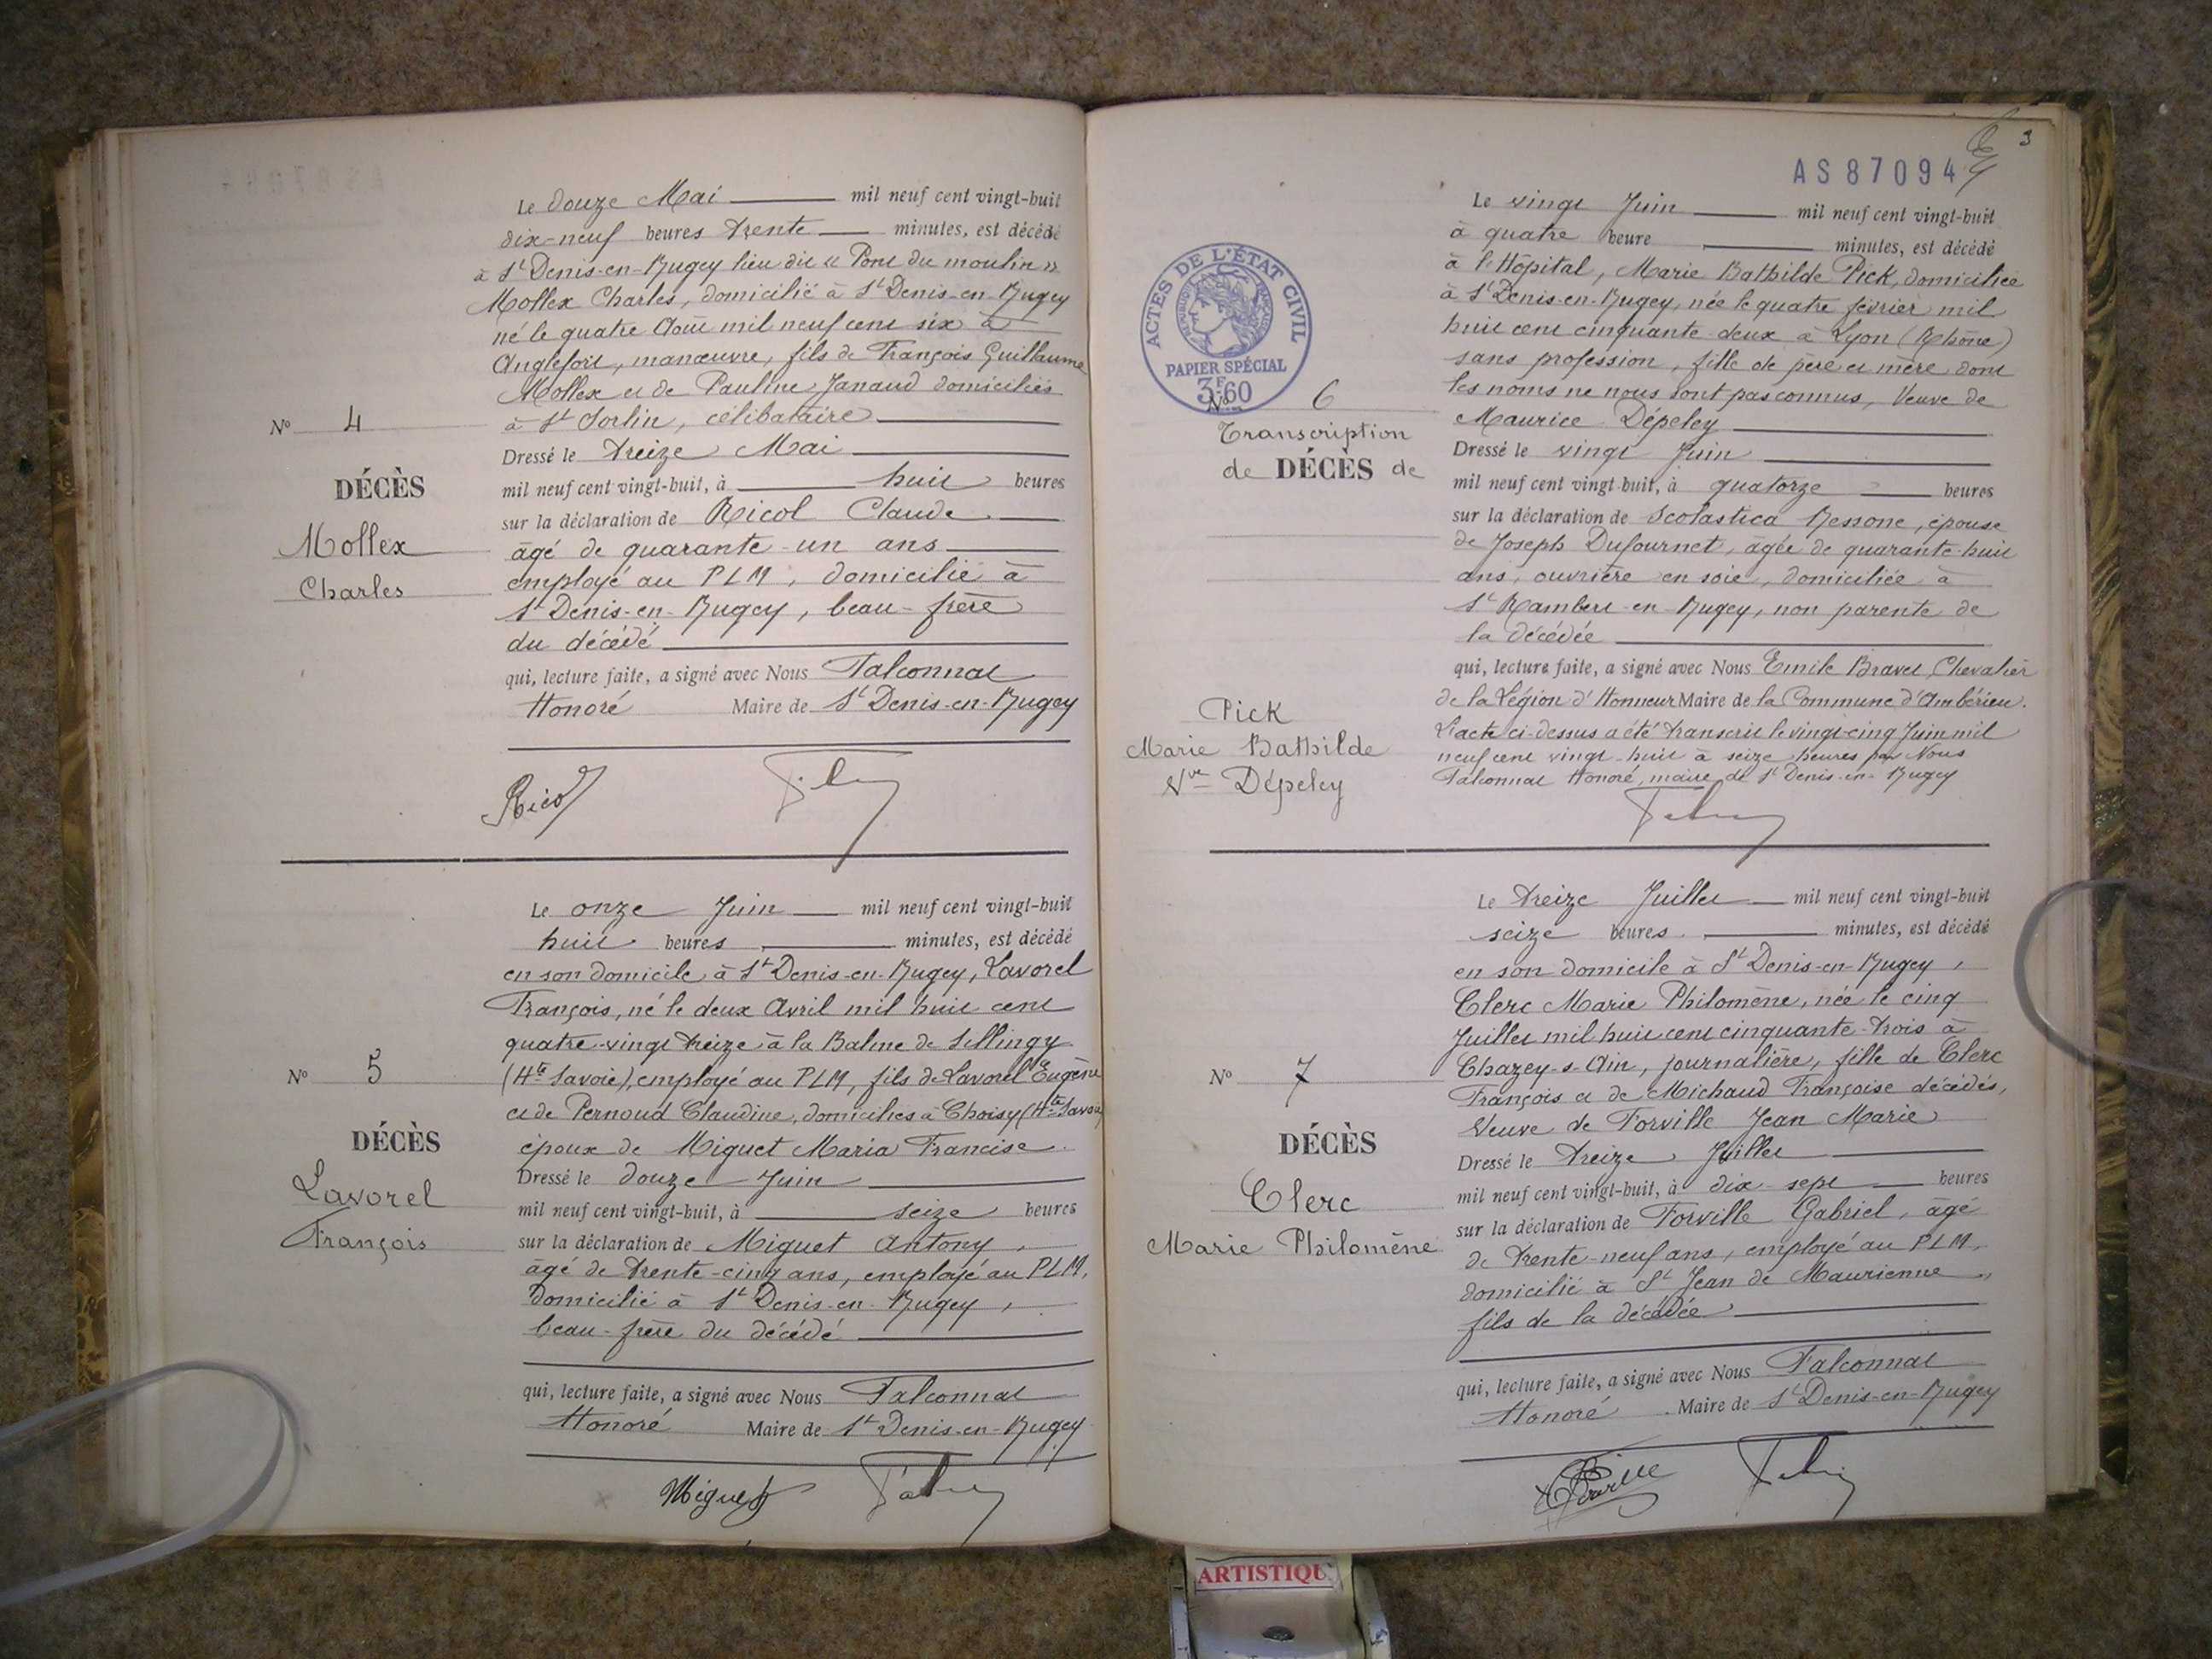 Le douze Mai mil neuf cent vingt-huit
dix-neuf heures trente minutes, est décédé
à St Denis-en-Bugey lieu dit « Pont du moulin »
Mollex Charles, domicilié à St Denis-en-Bugey
né le quatre Août mil neuf cent six à
Anglefort, manœuvre, fils de François Guillaume
Mollex et de Pauline Janaud domiciliés
à St Sorlin, célibataire
Nº 4
DÉCÈS
Mollex
Charles
Dressé le treize Mai
mil neuf cent vingt-huit, à huit heures
sur la déclaration de Ricol Claude
âgé de quarante-un ans
employé au PLM, domicilié à
St Denis-en-Bugey, beau-frère
du décédé
qui, lecture faite, a signé avec Nous Falconnat
Honoré Maire de St Denis-en-Bugey
Ricol
Le onze Juin mil neuf cent vingt-huit
huit heures minutes, est décédé
en son domicile à St Denis-en-Bugey, Lavorel
François, né le deux Avril mil huit cent
quatre-vingt treize à la Balme de Sillingy
(Hte Savoie), employé au PLM, fils de Lavorel Eugène
et de Pernoud Claudine, domiciliés à Choisy (Hte Savoie)
époux de Miguet Maria Francise
Nº 5
DÉCÈS
Lavorel
François
Dressé le douze Juin
mil neuf cent vingt-huit, à seize heures
sur la déclaration de Miguet Antony,
âgé de trente-cinq ans, employé au PLM,
domicilié à St Denis-en-Bugey,
beau-frère du décédé
qui, lecture faite, a signé avec Nous Falconnat
Honoré Maire de St Denis-en-Bugey
Miguet
3
AS 87094
ACTES DE L'ÉTAT CIVIL
RÉPUBLIQUE FRANÇAISE
PAPIER SPÉCIAL
3F60
Le vingt Juin mil neuf cent vingt-huit
à quatre heure minutes, est décédé
à l'Hôpital, Marie Bathilde Pick, domiciliée
à St Denis-en-Bugey, née le quatre février mil
huit cent cinquante-deux à Lyon (Rhône)
sans profession, fille de père et mère dont
les noms ne nous sont pas connus, Veuve de
Maurice Dépeley
Nº 6
Transcription
de DÉCÈS de
Pick
Marie Bathilde
Vve Dépeley
Dressé le vingt Juin
mil neuf cent vingt-huit, à quatorze heures
sur la déclaration de Scolastica Bessone, épouse
de Joseph Dufournet, âgée de quarante-huit
ans, ouvrière en soie, domiciliée à
St Rambert-en-Bugey, non parente de
la décédée
qui, lecture faite, a signé avec Nous Emile Bravet, Chevalier
de la Légion d'Honneur Maire de la Commune d'Ambérieu.
L'acte ci-dessus a été transcrit le vingt-cinq Juin mil
neuf cent vingt-huit à seize heures par Nous
Falconnat Honoré, maire de St Denis-en-Bugey
Le treize Juillet mil neuf cent vingt-huit
seize heures minutes, est décédé
en son domicile à St Denis-en-Bugey,
Clerc Marie Philomène, née le cinq
Juillet mil huit cent cinquante-trois à
Chazey-s-Ain, journalière, fille de Clerc
François et de Michaud Françoise décédés,
Veuve de Forville Jean Marie
Nº 7
DÉCÈS
Clerc
Marie Philomène
Dressé le treize Juillet
mil neuf cent vingt-huit, à dix-sept heures
sur la déclaration de Forville Gabriel, âgé
de trente-neuf ans, employé au PLM,
domicilié à St Jean de Maurienne,
fils de la décédée
qui, lecture faite, a signé avec Nous Falconnat
Honoré Maire de St Denis-en-Bugey
ARTISTIQU